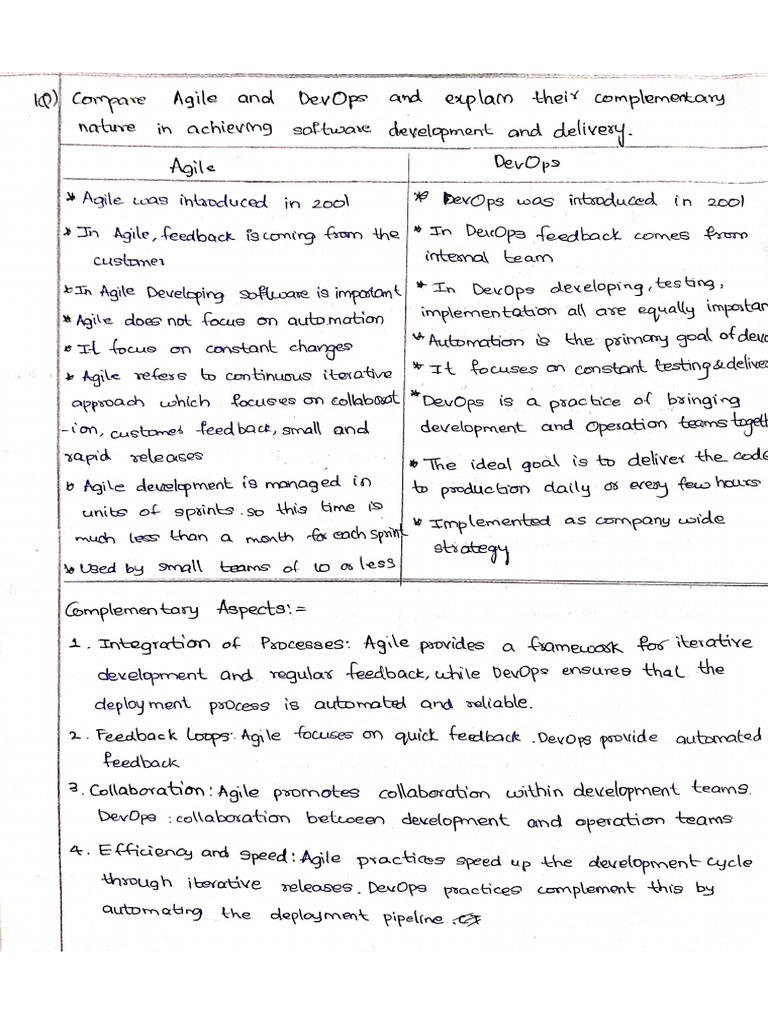 1Q) Compare Agile and DevOps and explain their complementary
nature in achieving software development and delivery.
Agile
* Agile was introduced in 2001
* In Agile, feedback is coming from the
customer
* In Agile Developing software is important
* Agile does not focus on automation
* It focus on constant changes
* Agile refers to continuous iterative
approach which focuses on collaborat
-ion, customer feedback, small and
rapid releases
* Agile development is managed in
units of sprints. so this time is
much less than a month for each sprint
* Used by small teams of 10 or less
DevOps
* DevOps was introduced in 2001
* In DevOps feedback comes from
internal team
* In DevOps developing, testing,
implementation all are equally importan
* Automation is the primary goal of devo
* It focuses on constant testing & deliver
* DevOps is a practice of bringing
development and Operation teams togeth
* The ideal goal is to deliver the code
to production daily or every few hours
* Implemented as company wide
strategy
Complementary Aspects:=
1. Integration of Processes: Agile provides a framework for iterative
development and regular feedback, while DevOps ensures that the
deployment process is automated and reliable.
2. Feedback Loops: Agile focuses on quick feedback. DevOps provide automated
feedback
3. Collaboration: Agile promotes collaboration within development teams.
DevOps: collaboration between development and operation teams
4. Efficiency and speed: Agile practices speed up the development cycle
through iterative releases. DevOps practices complement this by
automating the deployment pipeline.